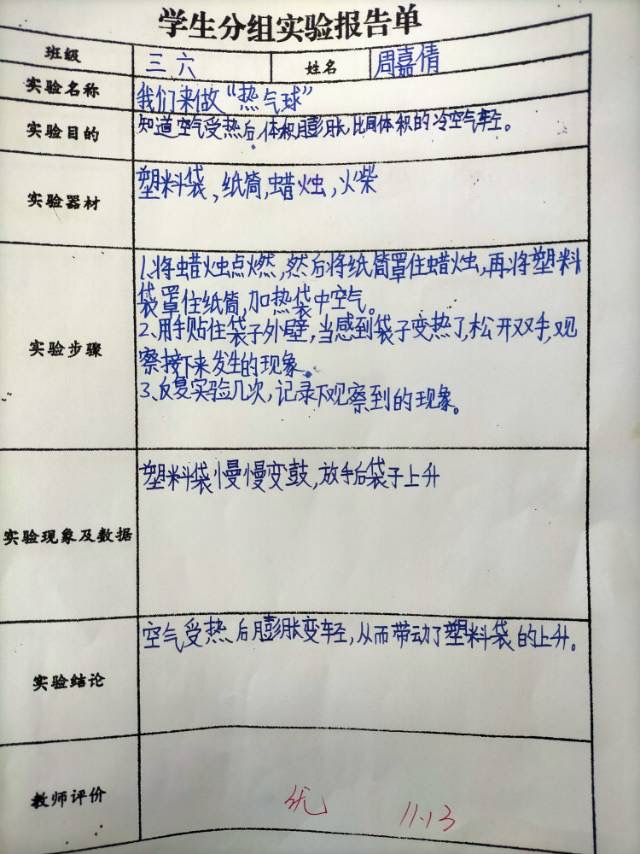 学生分组实验报告单
班级 三六 姓名 周嘉倩
实验名称 我们来做“热气球”
实验目的 知道空气受热后,体积膨胀,比同体积的冷空气轻。
实验器材 塑料袋,纸筒,蜡烛,火柴
1.将蜡烛点燃,然后将纸筒罩住蜡烛,再将塑料
袋罩住纸筒,加热袋中空气。
2、用手贴住袋子外壁,当感到袋子变热了,松开双手,观
实验步骤
察接下来发生的现象。
3、反复实验几次,记录下观察到的现象。
塑料袋慢慢变鼓,放手后袋子上升
实验现象及数据
空气受热后膨胀变轻,从而带动了塑料袋的上升。
实验结论
教师评价 优 11.13